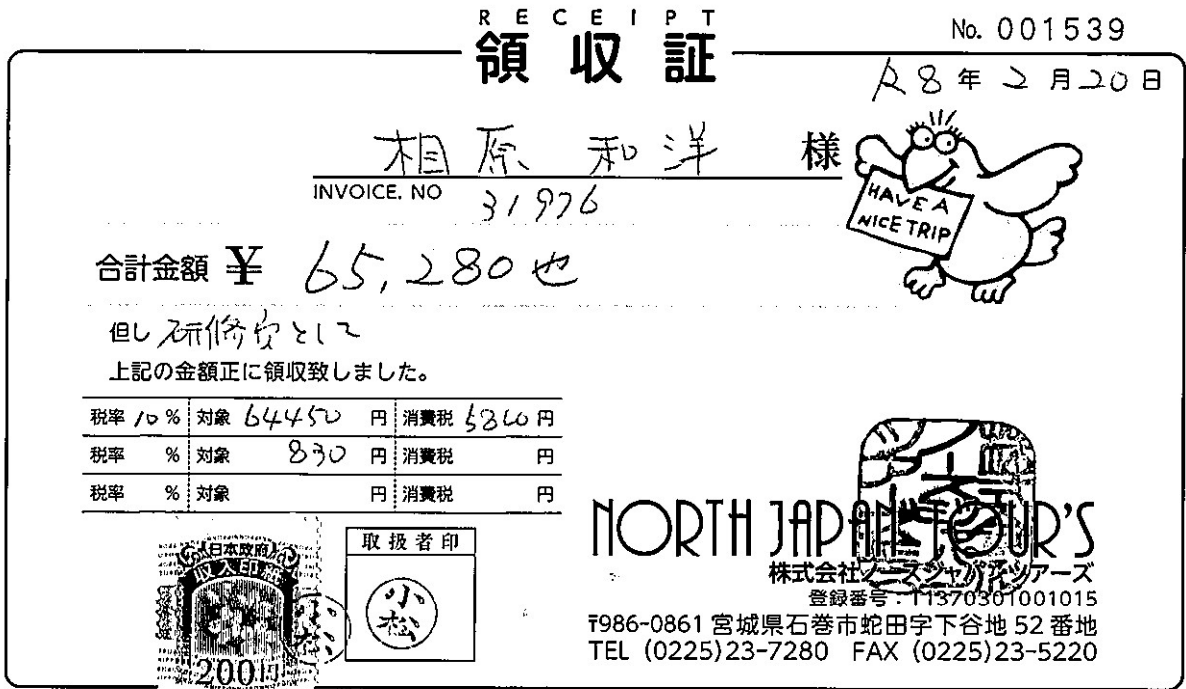 RECEIPT
領収証
No. 001539
R8年2月20日
相原 和洋 様
INVOICE. NO 31976
HAVE A
NICE TRIP
合計金額 ¥ 65,280也
但し 研修費として
上記の金額正に領収致しました。
税率 10 % 対象 64450 円 消費税 5860 円
税率 % 対象 830 円 消費税 円
税率 % 対象 円 消費税 円
日本政府
収入印紙
200円
取扱者印
小松
小松
NORTH JAPAN TOUR'S
株式会社ノースジャパンツアーズ
登録番号:T1370301001015
〒986-0861 宮城県石巻市蛇田字下谷地 52 番地
TEL (0225)23-7280 FAX (0225)23-5220